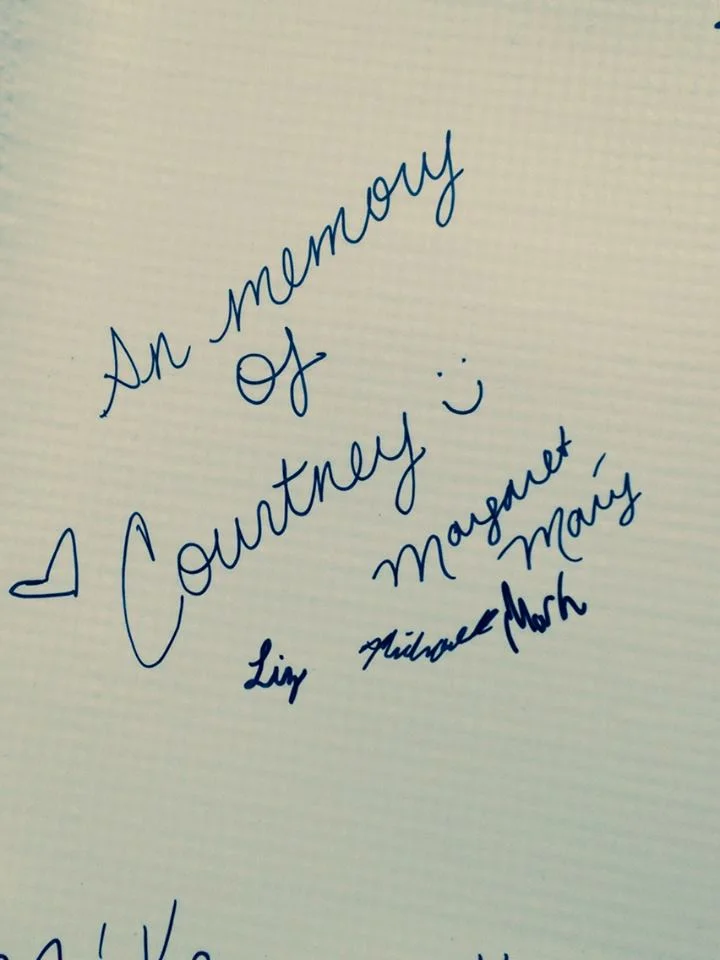 In memory
of
Courtney :)
Margaret
Mary
Liz Michael Mark